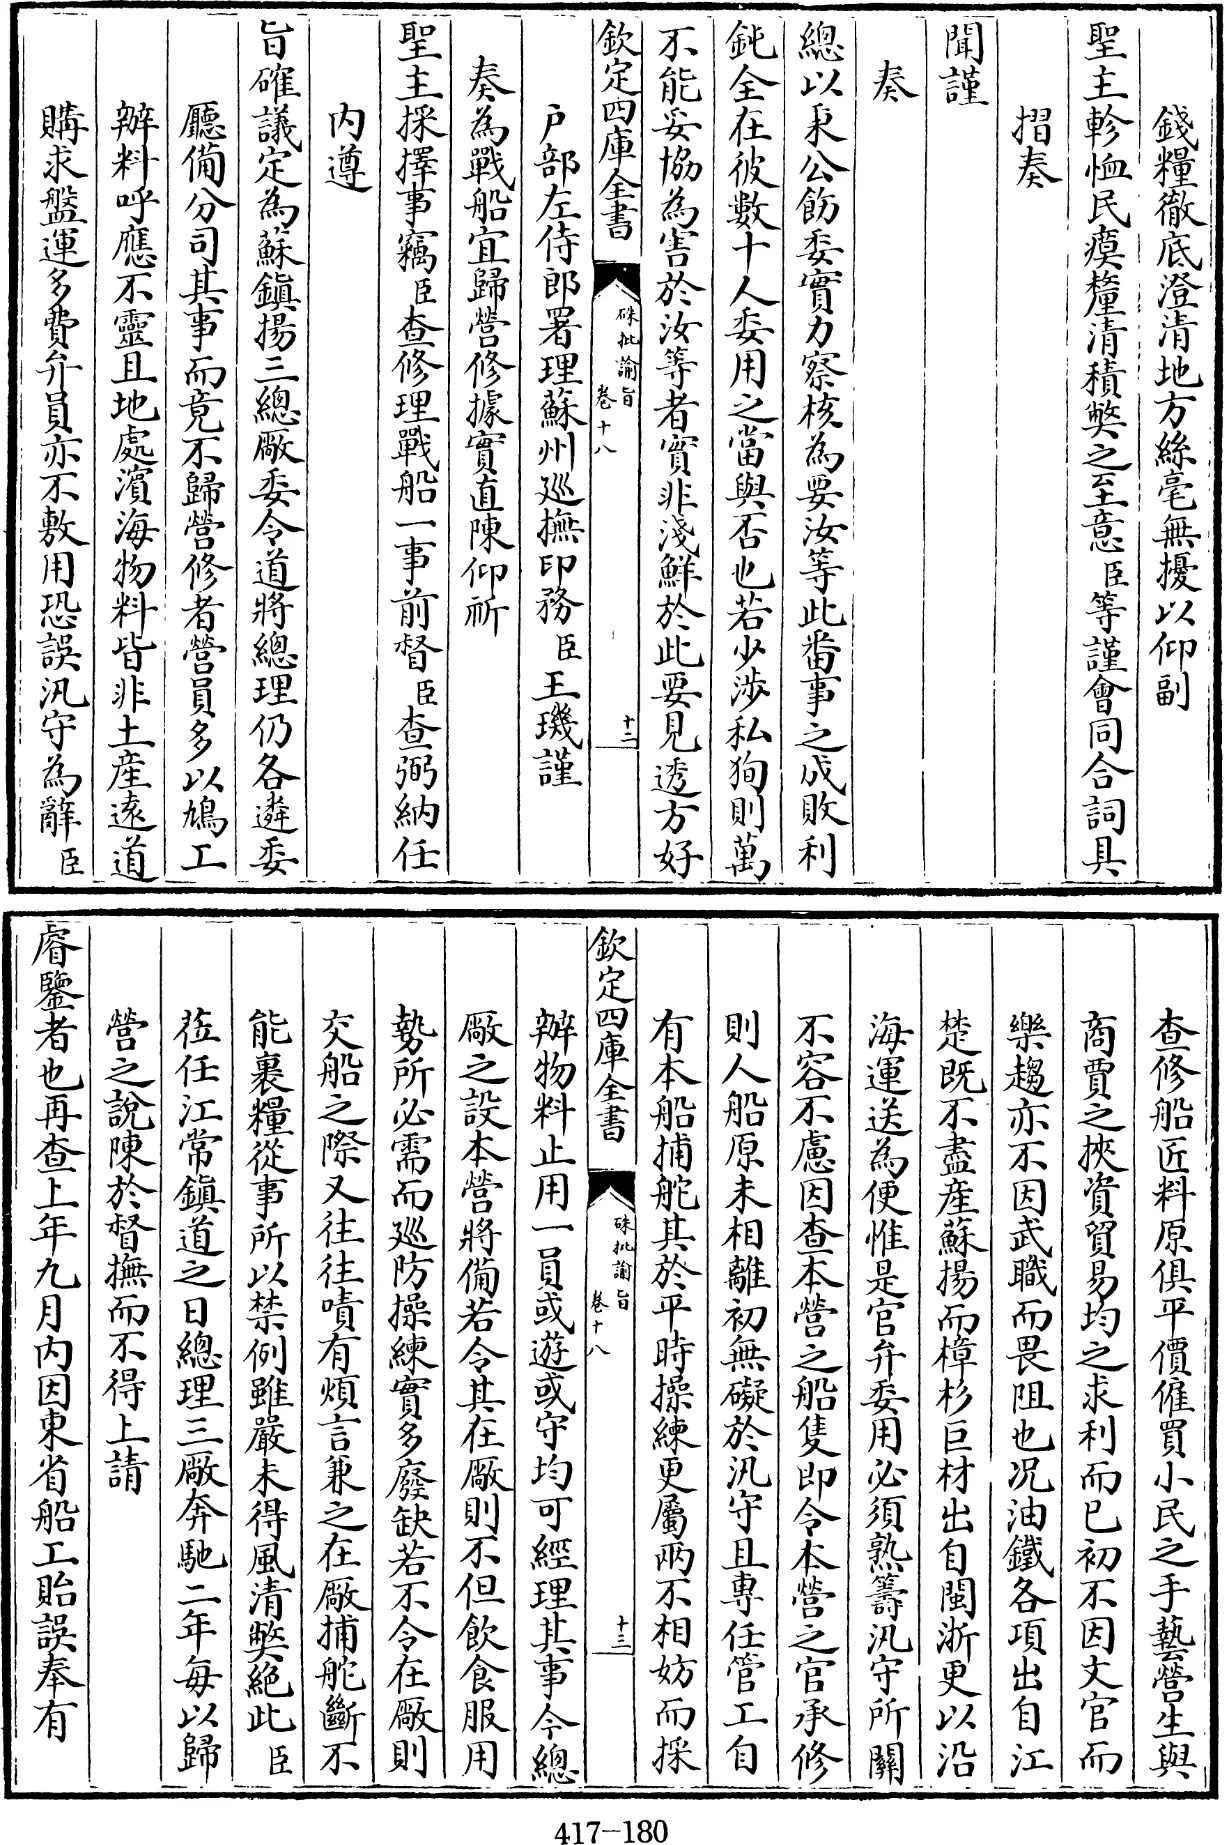 錢糧徹底澄清地方絲毫無擾以仰副
聖主軫恤民瘼釐清積弊之至意臣等謹會同合詞具
摺奏
聞謹
奏
總以秉公飭委實力察核為要汝等此番事之成敗利
鈍全在彼數十人委用之當與否也若少涉私狥則萬
不能妥協為害於汝等者實非淺鮮於此要見透方好
欽定四庫全書
硃批諭旨
卷十八
十二
戶部左侍郎署理蘇州巡撫印務臣王璣謹
奏為戰船宜歸營修據實直陳仰祈
聖主採擇事竊臣查修理戰船一事前督臣查弼納任
內遵
旨確議定為蘇鎮揚三總廠委令道將總理仍各遴委
廳備分司其事而竟不歸營修者營員多以鳩工
辦料呼應不靈且地處濱海物料皆非土產遠道
購求盤運多費弁員亦不敷用恐誤汛守為辭臣
查修船匠料原俱平價僱買小民之手藝營生與
商賈之挾資貿易均之求利而已初不因文官而
樂趨亦不因武職而畏阻也况油鐵各項出自江
楚既不盡產蘇揚而樟杉巨材出自閩浙更以沿
海運送為便惟是官弁委用必須熟籌汛守所關
不容不慮因查本營之船隻即令本營之官承修
則人船原未相離初無礙於汛守且專任管工自
有本船捕舵其於平時操練更屬兩不相妨而採
欽定四庫全書
硃批諭旨
卷十八
十三
辦物料止用一員或遊或守均可經理其事今總
廠之設本營將備若令其在廠則不但飲食服用
勢所必需而巡防操練實多廢缺若不令在廠則
交船之際又往往嘖有煩言兼之在廠捕舵斷不
能裹糧從事所以禁例雖嚴未得風清弊絕此臣
蒞任江常鎮道之日總理三廠奔馳二年每以歸
營之說陳於督撫而不得上請
睿鑒者也再查上年九月內因東省船工貽誤奉有
417-180